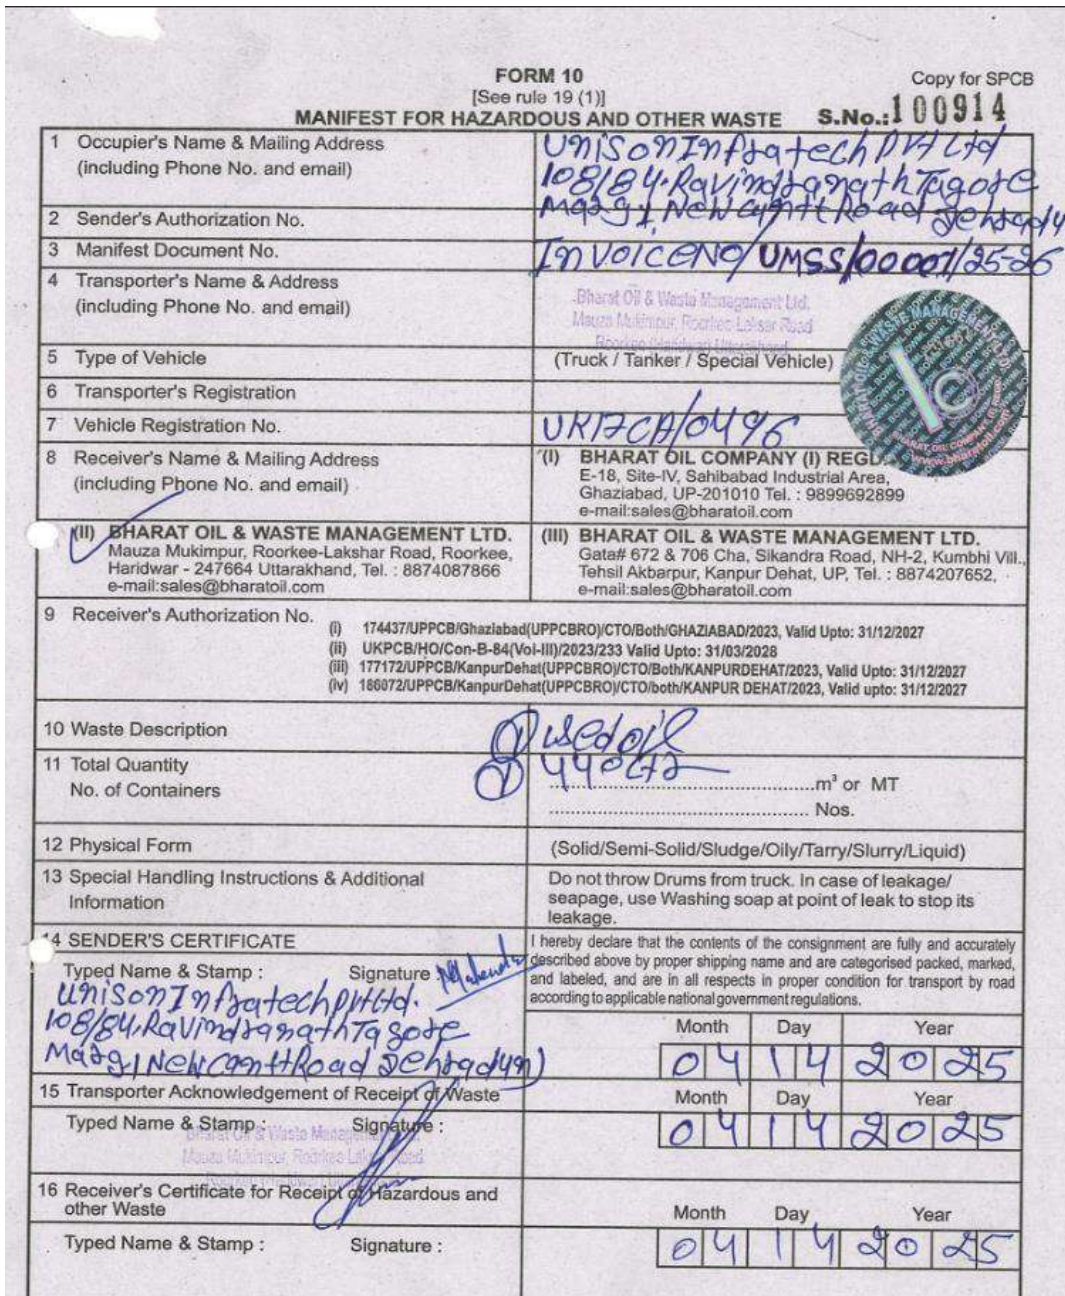 FORM 10
Copy for SPCB
[See rule 19 (1)]
MANIFEST FOR HAZARDOUS AND OTHER WASTE
S.No.: 100914
1 Occupier's Name & Mailing Address
(including Phone No. and email)
Unison Infratech Pvt Ltd
108/84, Ravindranath Tagore
Marg, New Cantt Road Dehradu
2 Sender's Authorization No.
3 Manifest Document No.
Invoice NO/UMSS/00007/25-26
4 Transporter's Name & Address
(including Phone No. and email)
Bharat Oil & Waste Management Ltd.
Mauza Mukimpur, Roorkee-Laksar Road
Roorkee (Haridwar) Uttarakhand
5 Type of Vehicle
(Truck / Tanker / Special Vehicle)
6 Transporter's Registration
7 Vehicle Registration No.
UK17CA/0496
8 Receiver's Name & Mailing Address
(including Phone No. and email)
(I) BHARAT OIL COMPANY (I) REGD.
E-18, Site-IV, Sahibabad Industrial Area,
Ghaziabad, UP-201010 Tel. : 9899692899
e-mail:sales@bharatoil.com
www.bharatoil.com
(II) BHARAT OIL & WASTE MANAGEMENT LTD.
Mauza Mukimpur, Roorkee-Lakshar Road, Roorkee,
Haridwar - 247664 Uttarakhand, Tel. : 8874087866
e-mail:sales@bharatoil.com
(III) BHARAT OIL & WASTE MANAGEMENT LTD.
Gata# 672 & 706 Cha, Sikandra Road, NH-2, Kumbhi Vill.,
Tehsil Akbarpur, Kanpur Dehat, UP, Tel. : 8874207652,
e-mail:sales@bharatoil.com
9 Receiver's Authorization No.
(i) 174437/UPPCB/Ghaziabad(UPPCBRO)/CTO/Both/GHAZIABAD/2023, Valid Upto: 31/12/2027
(ii) UKPCB/HO/Con-B-84(Vol-III)/2023/233 Valid Upto: 31/03/2028
(iii) 177172/UPPCB/KanpurDehat(UPPCBRO)/CTO/Both/KANPURDEHAT/2023, Valid Upto: 31/12/2027
(iv) 186072/UPPCB/KanpurDehat(UPPCBRO)/CTO/both/KANPUR DEHAT/2023, Valid upto: 31/12/2027
10 Waste Description
① used oil
11 Total Quantity
① 440 Ltr
m³ or MT
No. of Containers
Nos.
12 Physical Form
(Solid/Semi-Solid/Sludge/Oily/Tarry/Slurry/Liquid)
13 Special Handling Instructions & Additional
Information
Do not throw Drums from truck. In case of leakage/
seapage, use Washing soap at point of leak to stop its
leakage.
14 SENDER'S CERTIFICATE
I hereby declare that the contents of the consignment are fully and accurately
described above by proper shipping name and are categorised packed, marked,
and labeled, and are in all respects in proper condition for transport by road
according to applicable national government regulations.
Typed Name & Stamp : Signature :
Unison Infratech Pvt Ltd.
108/84, Ravindranath Tagore
Marg, New Cantt Road Dehradun)
Month Day Year
04 14 2025
15 Transporter Acknowledgement of Receipt of Waste
Month Day Year
Typed Name & Stamp : Signature :
04 14 2025
Bharat Oil & Waste Management Ltd.
Mauza Mukimpur, Roorkee Laksar Road
16 Receiver's Certificate for Receipt of Hazardous and
other Waste
Month Day Year
Typed Name & Stamp : Signature :
04 14 2025